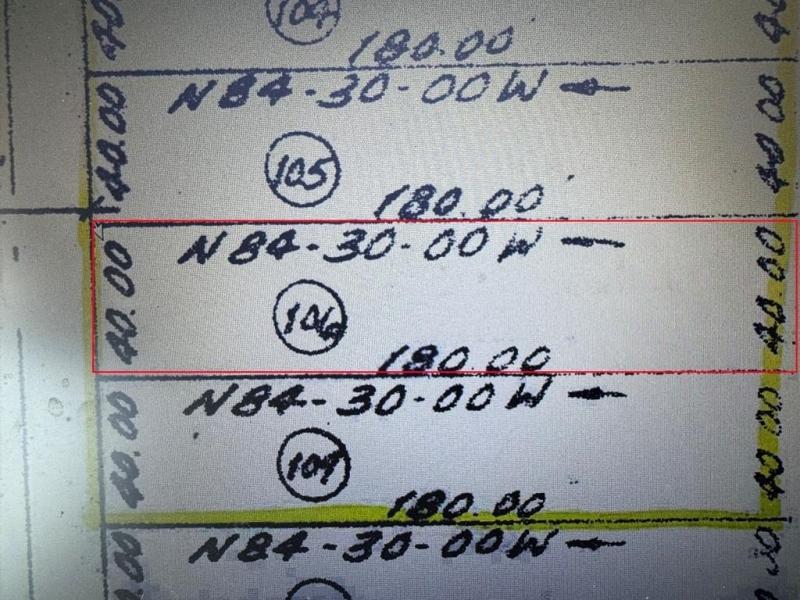 104
180.00
40.00 N84-30-00W 40.00
105
180.00
40.00 N84-30-00W 40.00
106
180.00
40.00 N84-30-00W 40.00
107
180.00
N84-30-00W